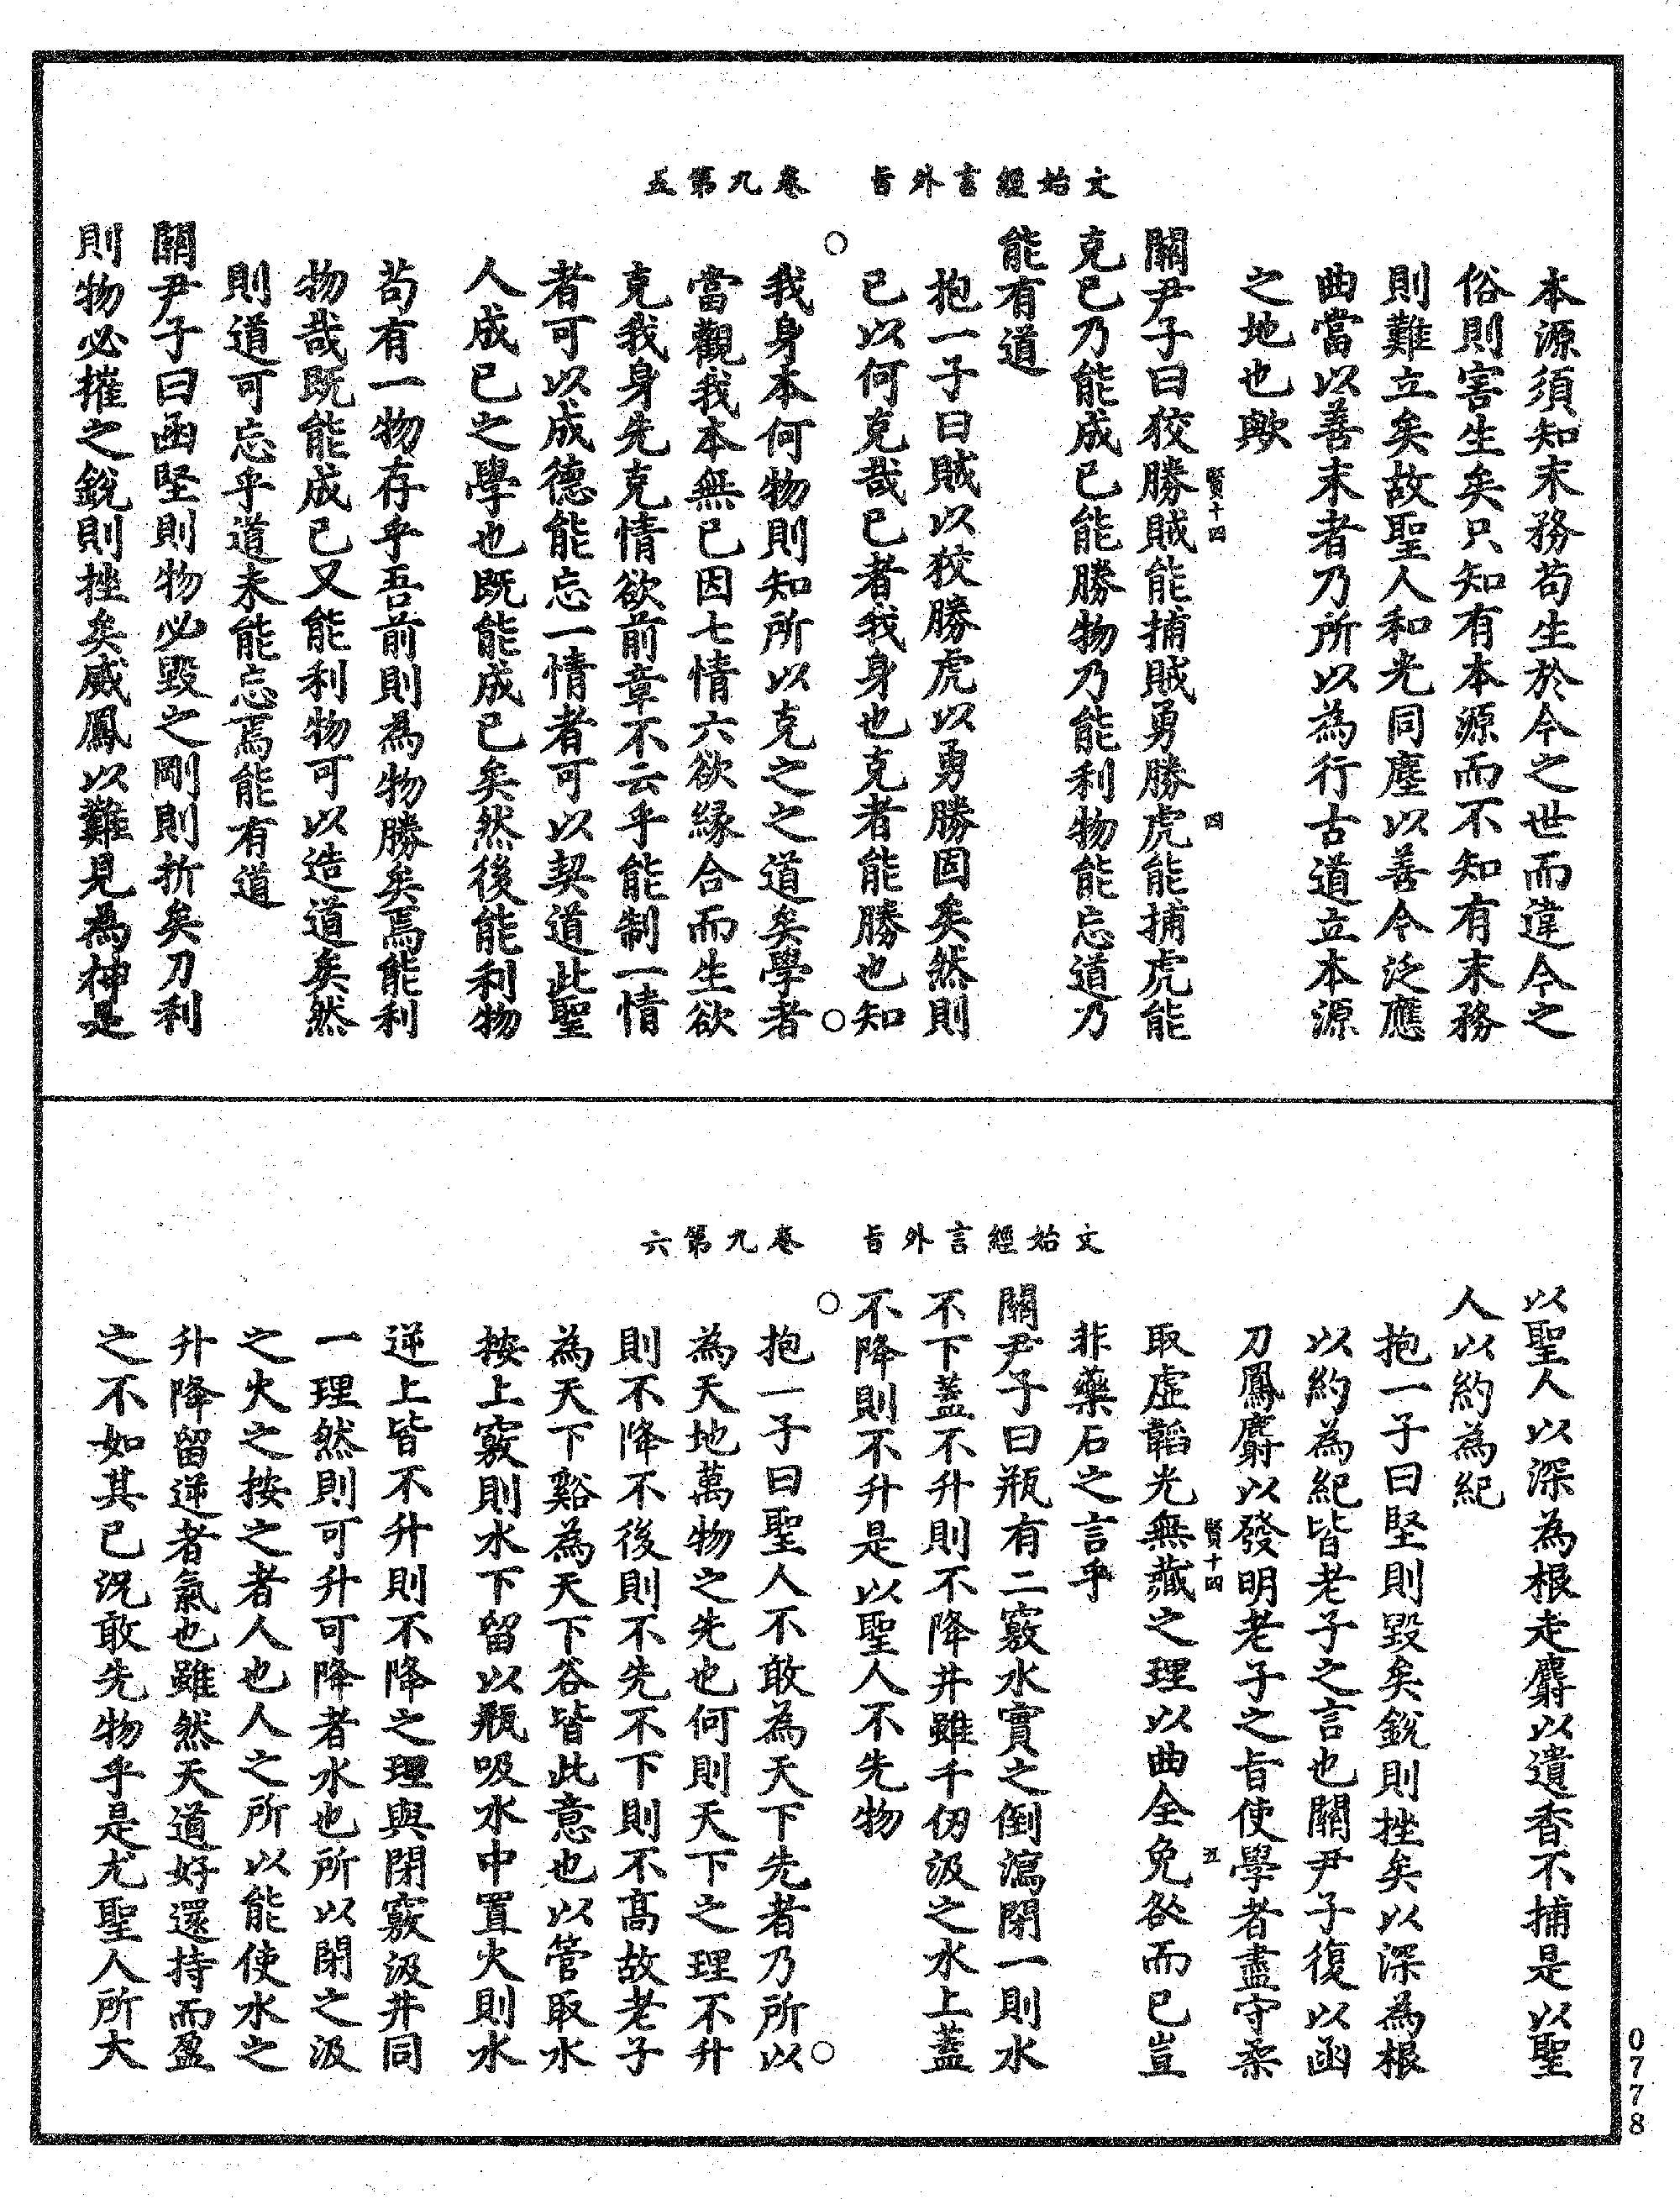 文始經言外旨　卷九第五
本源須知末務苟生於今之世而違今之
俗則害生矣只知有本源而不知有末務
則難立矣故聖人和光同塵以善今泛應
曲當以善末者乃所以為行古道立本源
之地也歟
關尹子曰狡勝賊能捕賊勇勝虎能捕虎能
克己乃能成己能勝物乃能利物能忘道乃
能有道
抱一子曰賊以狡勝虎以勇勝固矣然則
己以何克哉己者我身也克者能勝也知
我身本何物則知所以克之之道矣學者
當觀我本無己因七情六欲緣合而生欲
克我身先克情欲前章不云乎能制一情
者可以成德能忘一情者可以契道此聖
人成己之學也既能成己矣然後能利物
苟有一物存乎吾前則為物勝矣焉能利
物哉既能成己又能利物可以造道矣然
則道可忘乎道未能忘焉能有道
關尹子曰函堅則物必毀之剛則折矣刀利
則物必摧之銳則挫矣威鳳以難見為神是
賢十四
四
文始經言外旨　卷九第六
以聖人以深為根走麝以遺香不捕是以聖
人以約為紀
抱一子曰堅則毀矣銳則挫矣以深為根
以約為紀皆老子之言也關尹子復以函
刀鳳麝以發明老子之旨使學者盡守柔
取虛韜光無藏之理以曲全免咎而已豈
非藥石之言乎
關尹子曰瓶有二竅水實之倒瀉閉一則水
不下蓋不升則不降井雖千仞汲之水上蓋
不降則不升是以聖人不先物
抱一子曰聖人不敢為天下先者乃所以
為天地萬物之先也何則天下之理不升
則不降不後則不先不下則不高故老子
為天下谿為天下谷皆此意也以管取水
按上竅則水下留以瓶吸水中置火則水
逆上皆不升則不降之理與閉竅汲井同
一理然則可升可降者水也所以閉之汲
之火之按之者人也人之所以能使水之
升降留逆者氣也雖然天道好還持而盈
之不如其已況敢先物乎是尤聖人所大
賢十四
五
0778